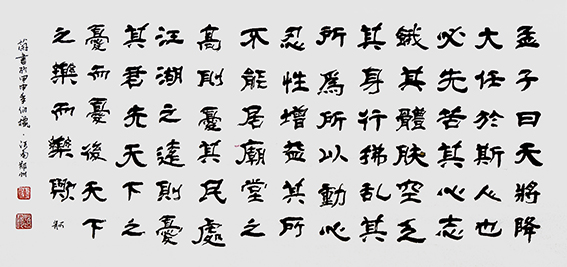 孟子曰天將降
大任於斯人也
必先苦其心志
餓其體膚空乏
其身行拂亂其
所爲所以動心
忍性增益其所
不能居廟堂之
高則憂其民處
江湖之遠則憂
其君先天下之
憂而憂後天下
之樂而樂歟
書於甲申年